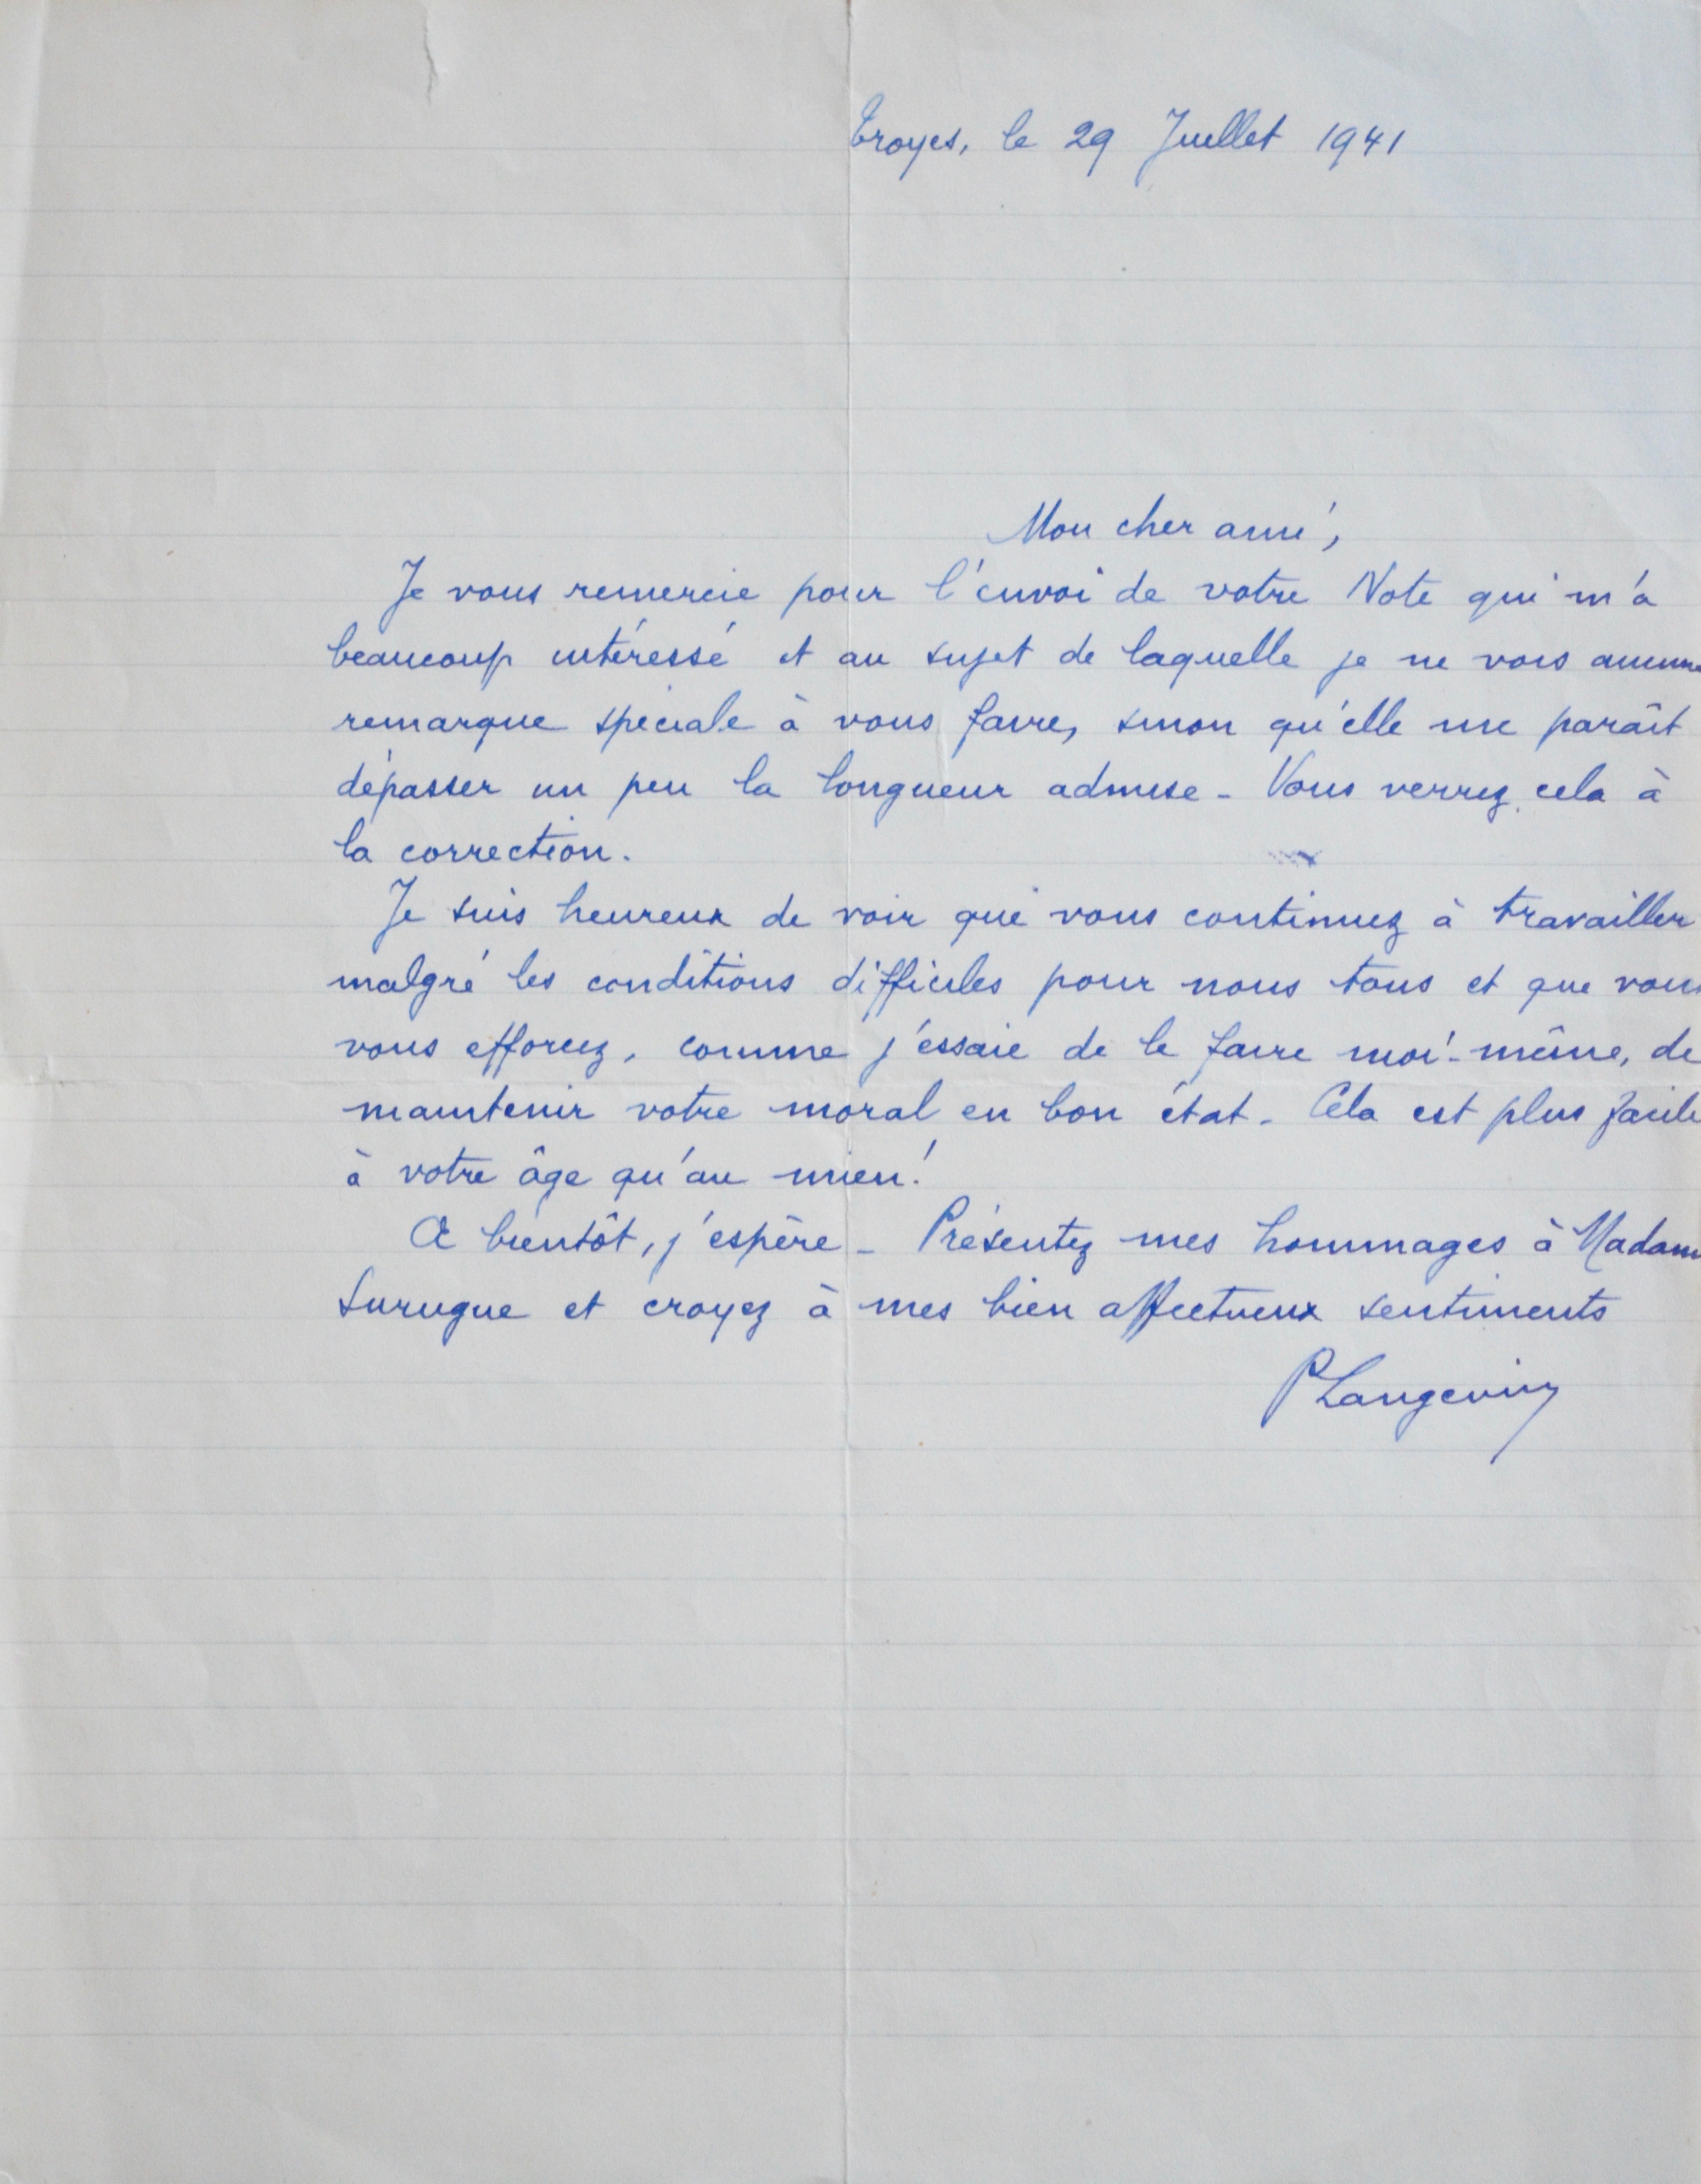 Troyes, le 29 Juillet 1941
Mon cher ami,
Je vous remercie pour l'envoi de votre Note qui m'a
beaucoup intéressé et au sujet de laquelle je ne vois aucune
remarque spéciale à vous faire, sinon qu'elle me paraît
dépasser un peu la longueur admise - Vous verrez cela à
la correction.
Je suis heureux de voir que vous continuez à travailler
malgré les conditions difficiles pour nous tous et que vous
vous efforcez, comme j'essaie de le faire moi-même, de
maintenir votre moral en bon état. Cela est plus facile
à votre âge qu'au mien!
A bientôt, j'espère - Présentez mes hommages à Madame
Surugue et croyez à mes bien affectueux sentiments
P Langevin